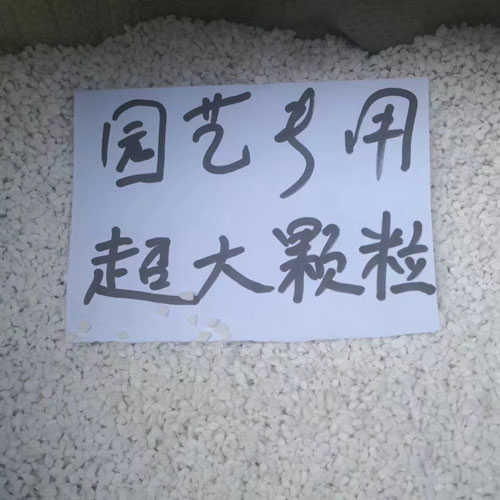 园艺专用
超大颗粒